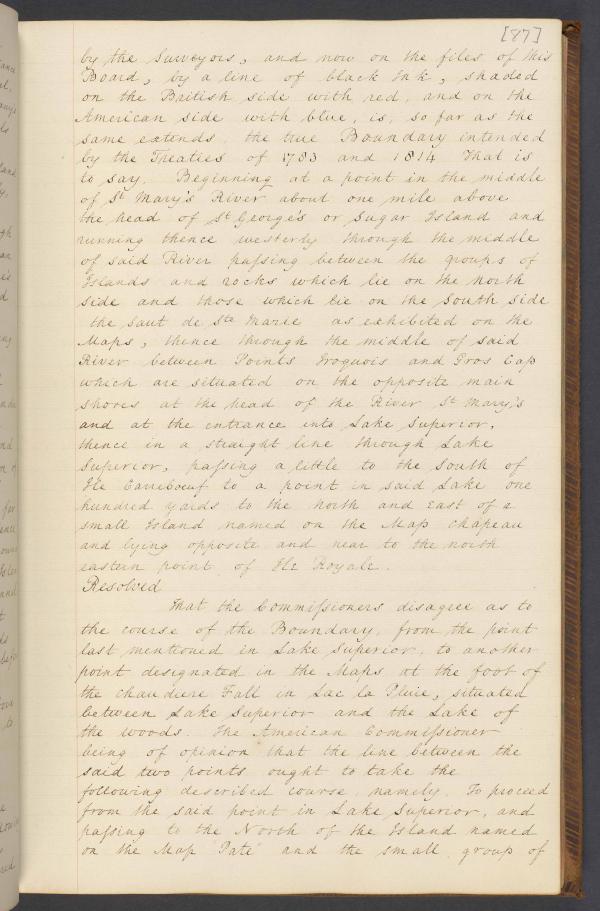 [87]
by the Surveyors, and now on the files of this
Board, by a line of black Ink, shaded
on the British side with red, and on the
American side with blue, is, so far as the
same extends, the true Boundary intended
by the Treaties of 1783 and 1814 That is
to say, Beginning at a point in the middle
of St Mary's River about one mile above
the head of St George's or Sugar Island and
running thence westerly through the middle
of said River passing between the groups of
Islands and rocks which lie on the north
side and those which lie on the South side
the Saut de Ste Marie as exhibited on the
Maps, thence through the middle of said
River between Points Iroquois and Gros Cap
which are situated on the opposite main
shores at the head of the River St Mary's
and at the entrance into Lake Superior,
thence in a straight line through Lake
Superior, passing a little to the South of
Ile Carreboeuf to a point in said Lake one
hundred yards to the north and east of a
small Island named on the Map Chapeau
and lying opposite and near to the north
eastern point of Ile Royale.
Resolved
That the Commissioners disagree as to
the course of the Boundary, from the point
last mentioned in Lake Superior, to another
point designated in the Maps at the foot of
the Chaudiere Fall in Lac la Pluie, situated
between Lake Superior and the Lake of
the woods. The American Commissioner
being of opinion that the line between the
said two points ought to take the
following described course, namely, To proceed
from the said point in Lake Superior, and
passing to the North of the Island named
on the Map "Paté" and the small group of